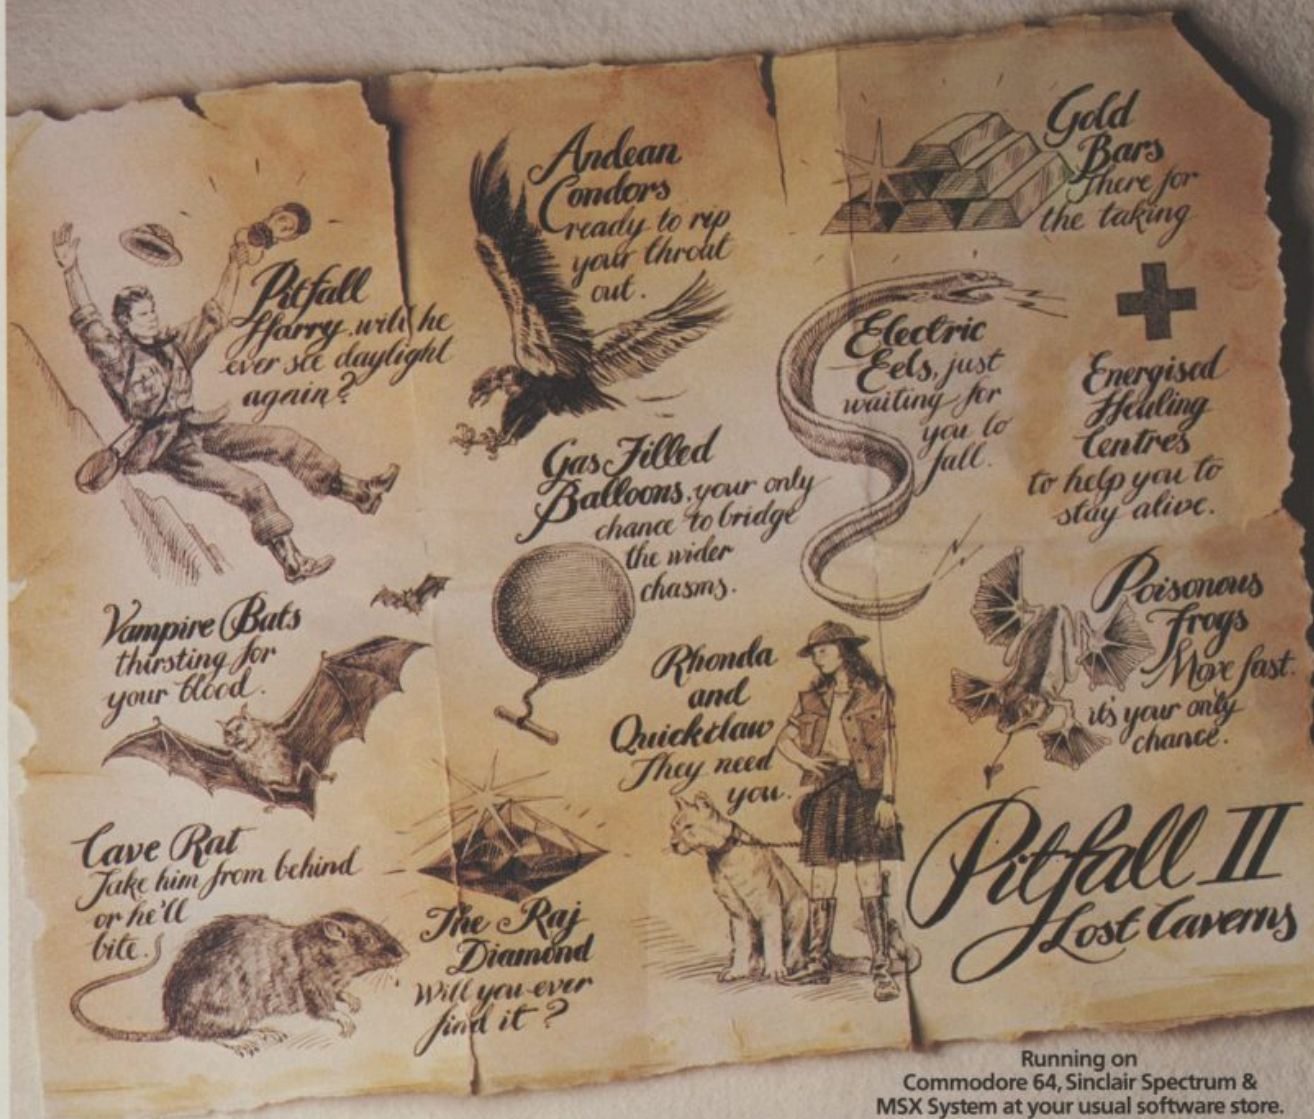 Pitfall
Harry, will he
ever see daylight
again?
Andean
Condors
ready to rip
your throat
out.
Gold
Bars
There for
the taking
Electric
Eels, just
waiting for
you to
fall.
Energised
Healing
Centres
to help you to
stay alive.
Gas Filled
Balloons, your only
chance to bridge
the wider
chasms.
Vampire Bats
thirsting for
your blood.
Rhonda
and
Quickclaw
They need
you.
Poisonous
Frogs
Move fast.
it's your only
chance.
Cave Rat
Take him from behind
or he'll
bite.
The Raj
Diamond
Will you ever
find it?
Pitfall II
Lost Caverns
Running on
Commodore 64, Sinclair Spectrum &
MSX System at your usual software store.